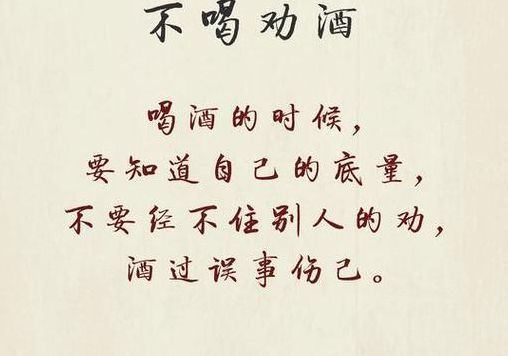 不喝劝酒
喝酒的时候，
要知道自己的底量，
不要经不住别人的劝，
酒过误事伤己。